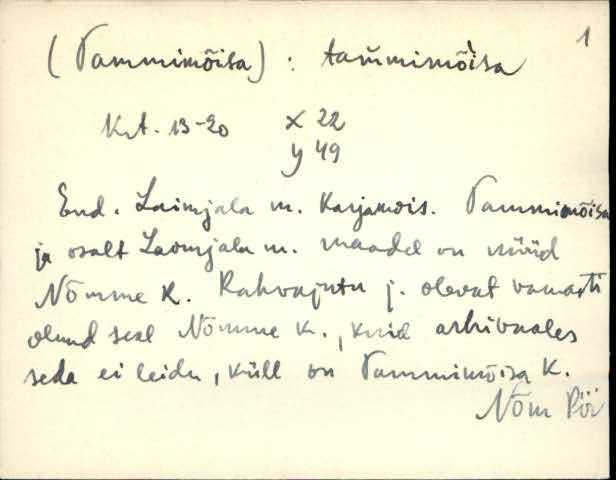 1
(Tammimõisa) : tam̆mimõ̀isa
Krt. 13-20 x 22
y 49
End. Laimjala m. karjamõis. Tammimõisa
ja osalt Laimjala m. maadel on nüüd
Nõmme k. Rahvajutu j. olevat vanasti
olnud seal Nõmme k., kuid arhivaales
seda ei leidu, küll on Tammimõisa k.
Nõm Pöi